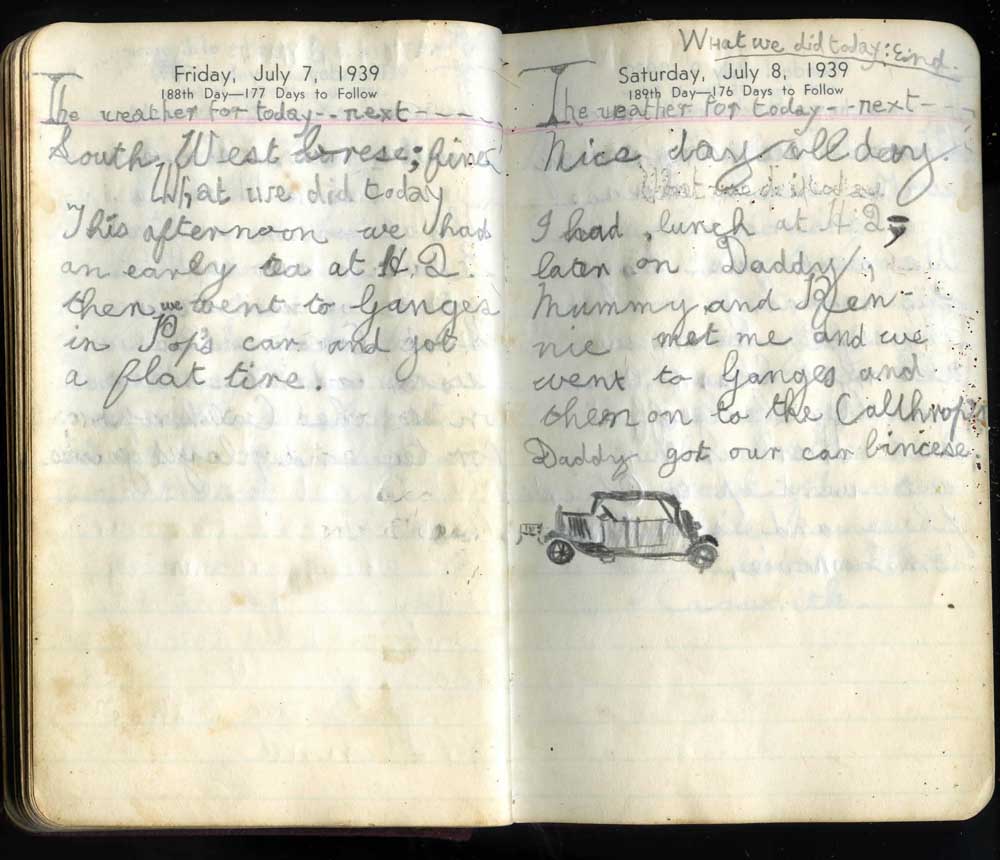 Friday, July 7, 1939
188th Day—177 Days to Follow
The weather for today--next----
South West brese; fine
What we did today
This afternoon we had
an early tea at H.Q.
then we went to Ganges
in Pop's car and got
a flat tire.
What we did today: End.
Saturday, July 8, 1939
189th Day—176 Days to Follow
The weather for today--next--
Nice day all day.
What we did today
I had lunch at H.Q;
later on Daddy,
Mummy and Ren-
nie met me and we
went to Ganges and
then on to the Calthrop's
Daddy got our car